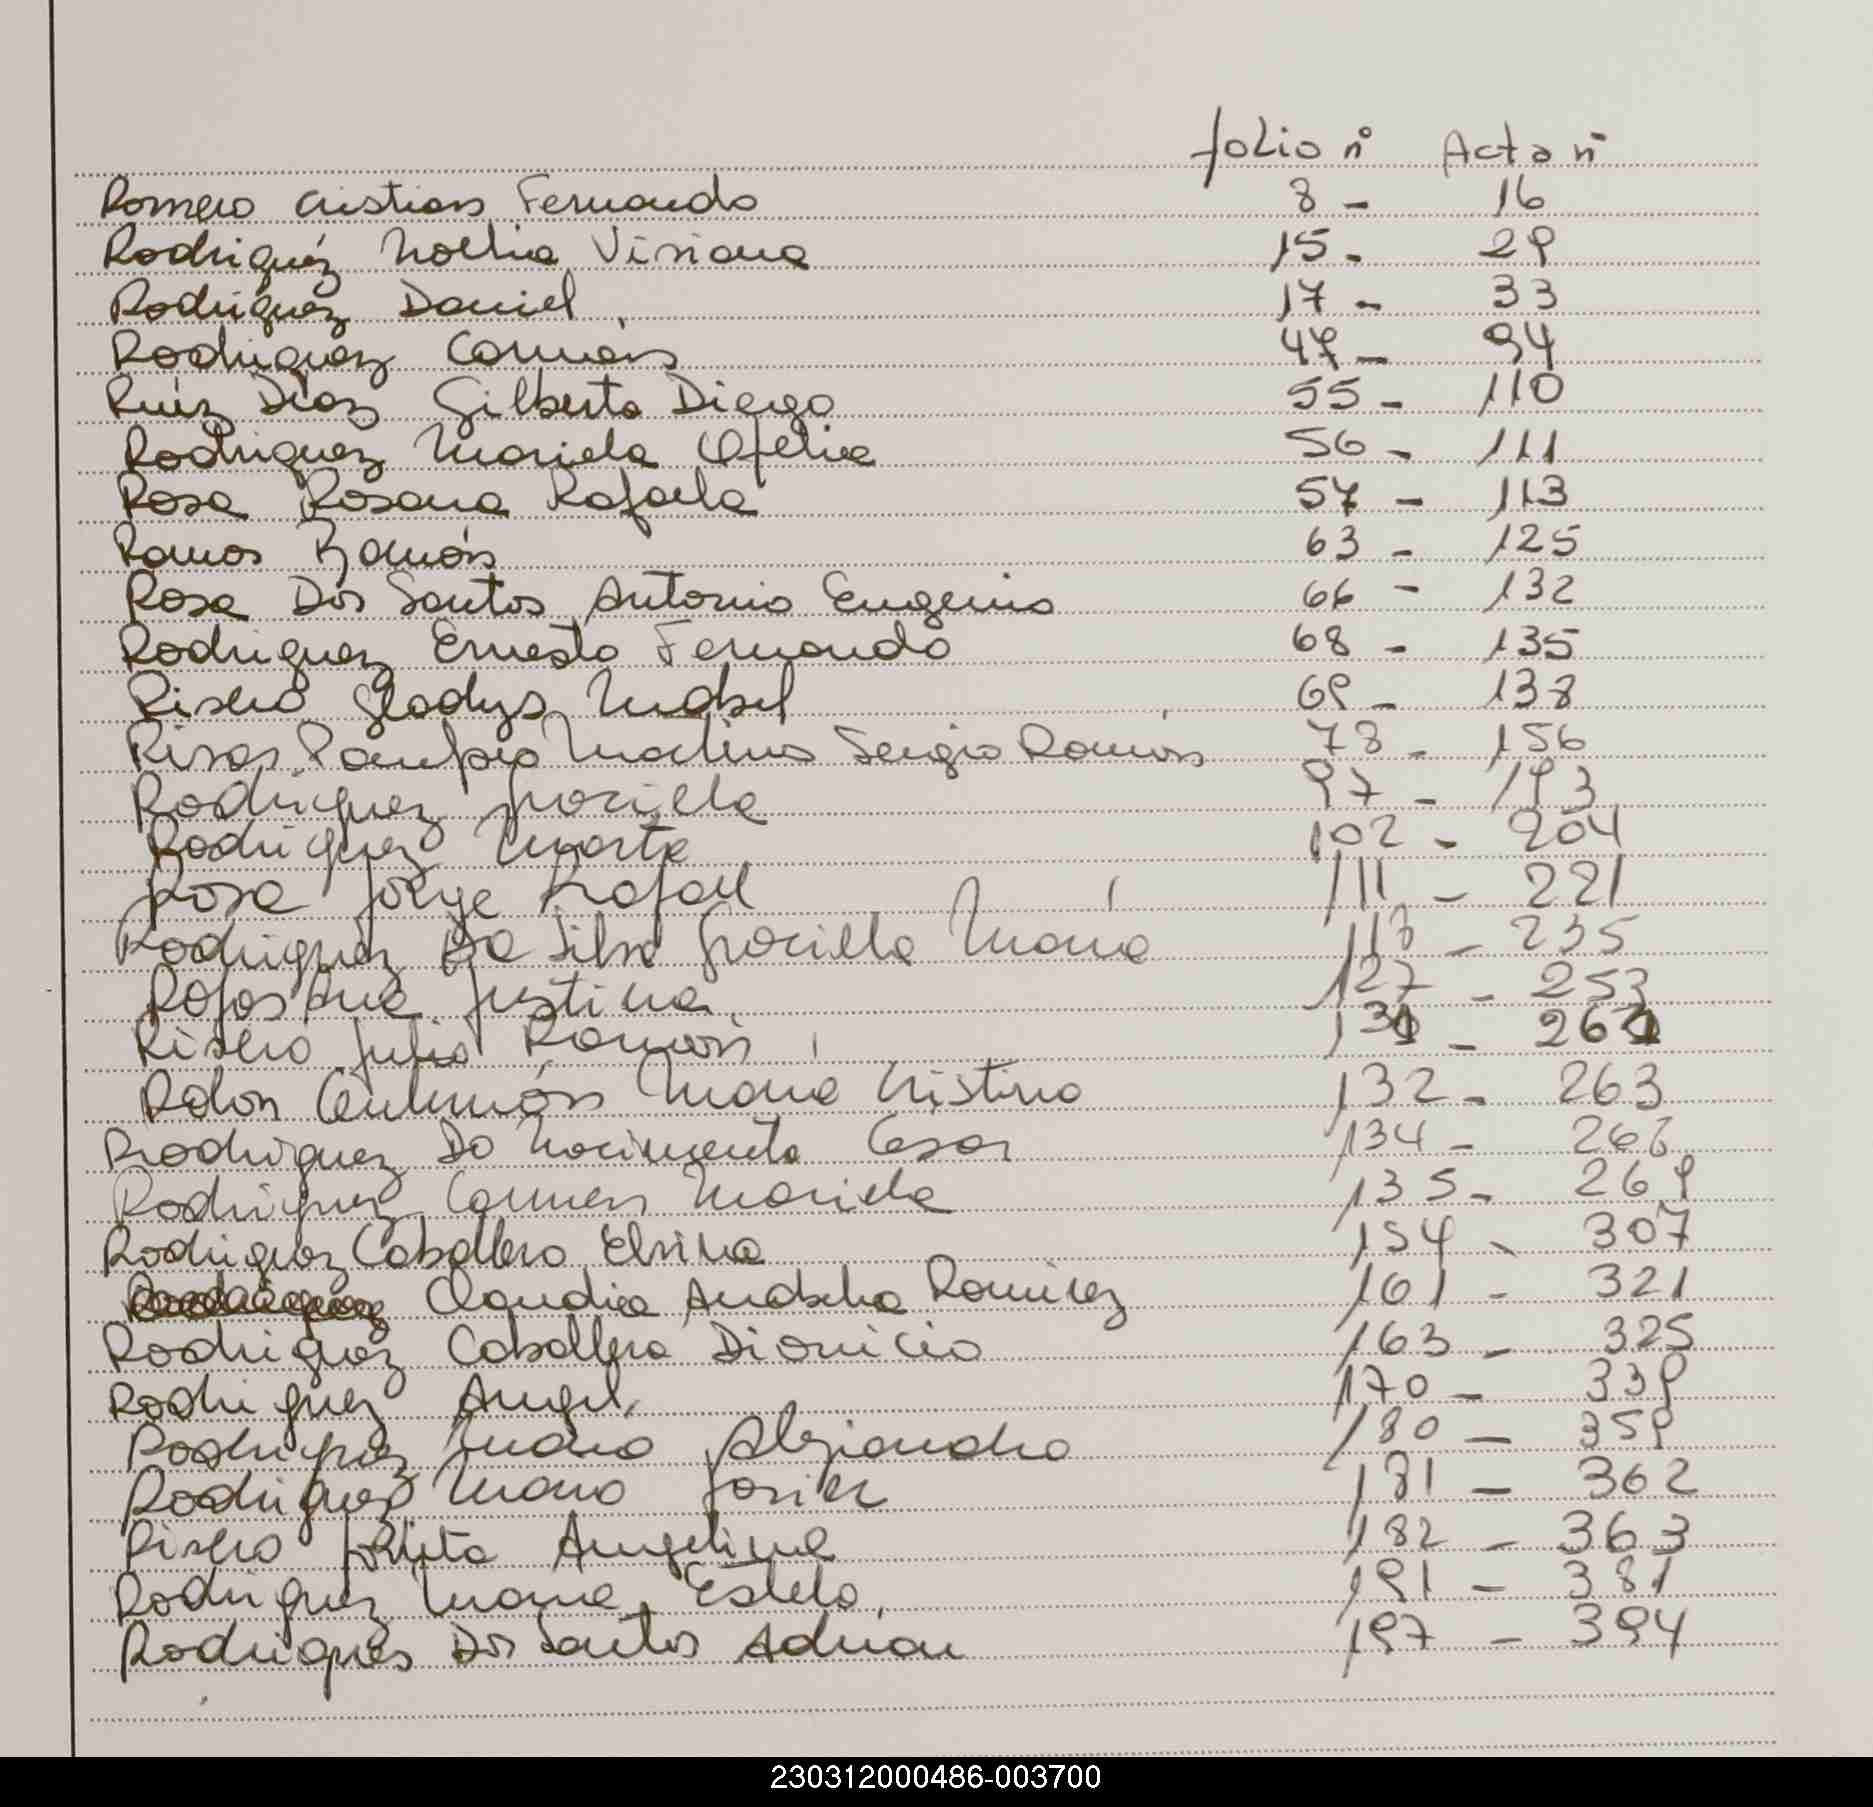 folio n° Acta n°
Romero Cristian Fernando 8 - 16
Rodriguéz Noelia Viviana 15 - 29
Rodriguez Daniel 17 - 33
Rodriguez Carmen 47 - 94
Ruíz Díaz Gilberto Diego 55 - 110
Rodriguez Mariela Ofelia 56 - 111
Rosa Rosana Rafaela 57 - 113
Ramos Ramón 63 - 125
Rosa Dos Santos Antonio Eugenio 66 - 132
Rodriguez Ernesto Fernando 68 - 135
Rivero Gladys Mabel 69 - 138
Rivas Sergio Ramón 78 - 156
Rodriguez Graciela 97 - 193
Rodriguez Marta 102 - 204
Rosa Jorge Rafael 111 - 221
Rodriguez Da Silva Graciella Maria 118 - 235
Rojas Ana Justina 127 - 253
Rivero Julio Ramon 131 - 261
Rolon María Cristina 132 - 263
Rodriguez Do Nacimento Cesar 134 - 268
Rodriguez Carmen Mariela 135 - 269
Rodriguez Caballero Elvira 154 - 307
Claudia Andrea Ramirez 161 - 321
Rodriguez Caballero Dionicio 163 - 325
Rodriguez Angel 170 - 339
Rodriguez Mario Alejandro 180 - 359
Rodriguez Mario Javier 181 - 362
Rivero Julieta Angelina 182 - 363
Rodriguez Maria Estela 191 - 381
Rodrigues Dos Santos Adrian 197 - 394
230312000486-003700